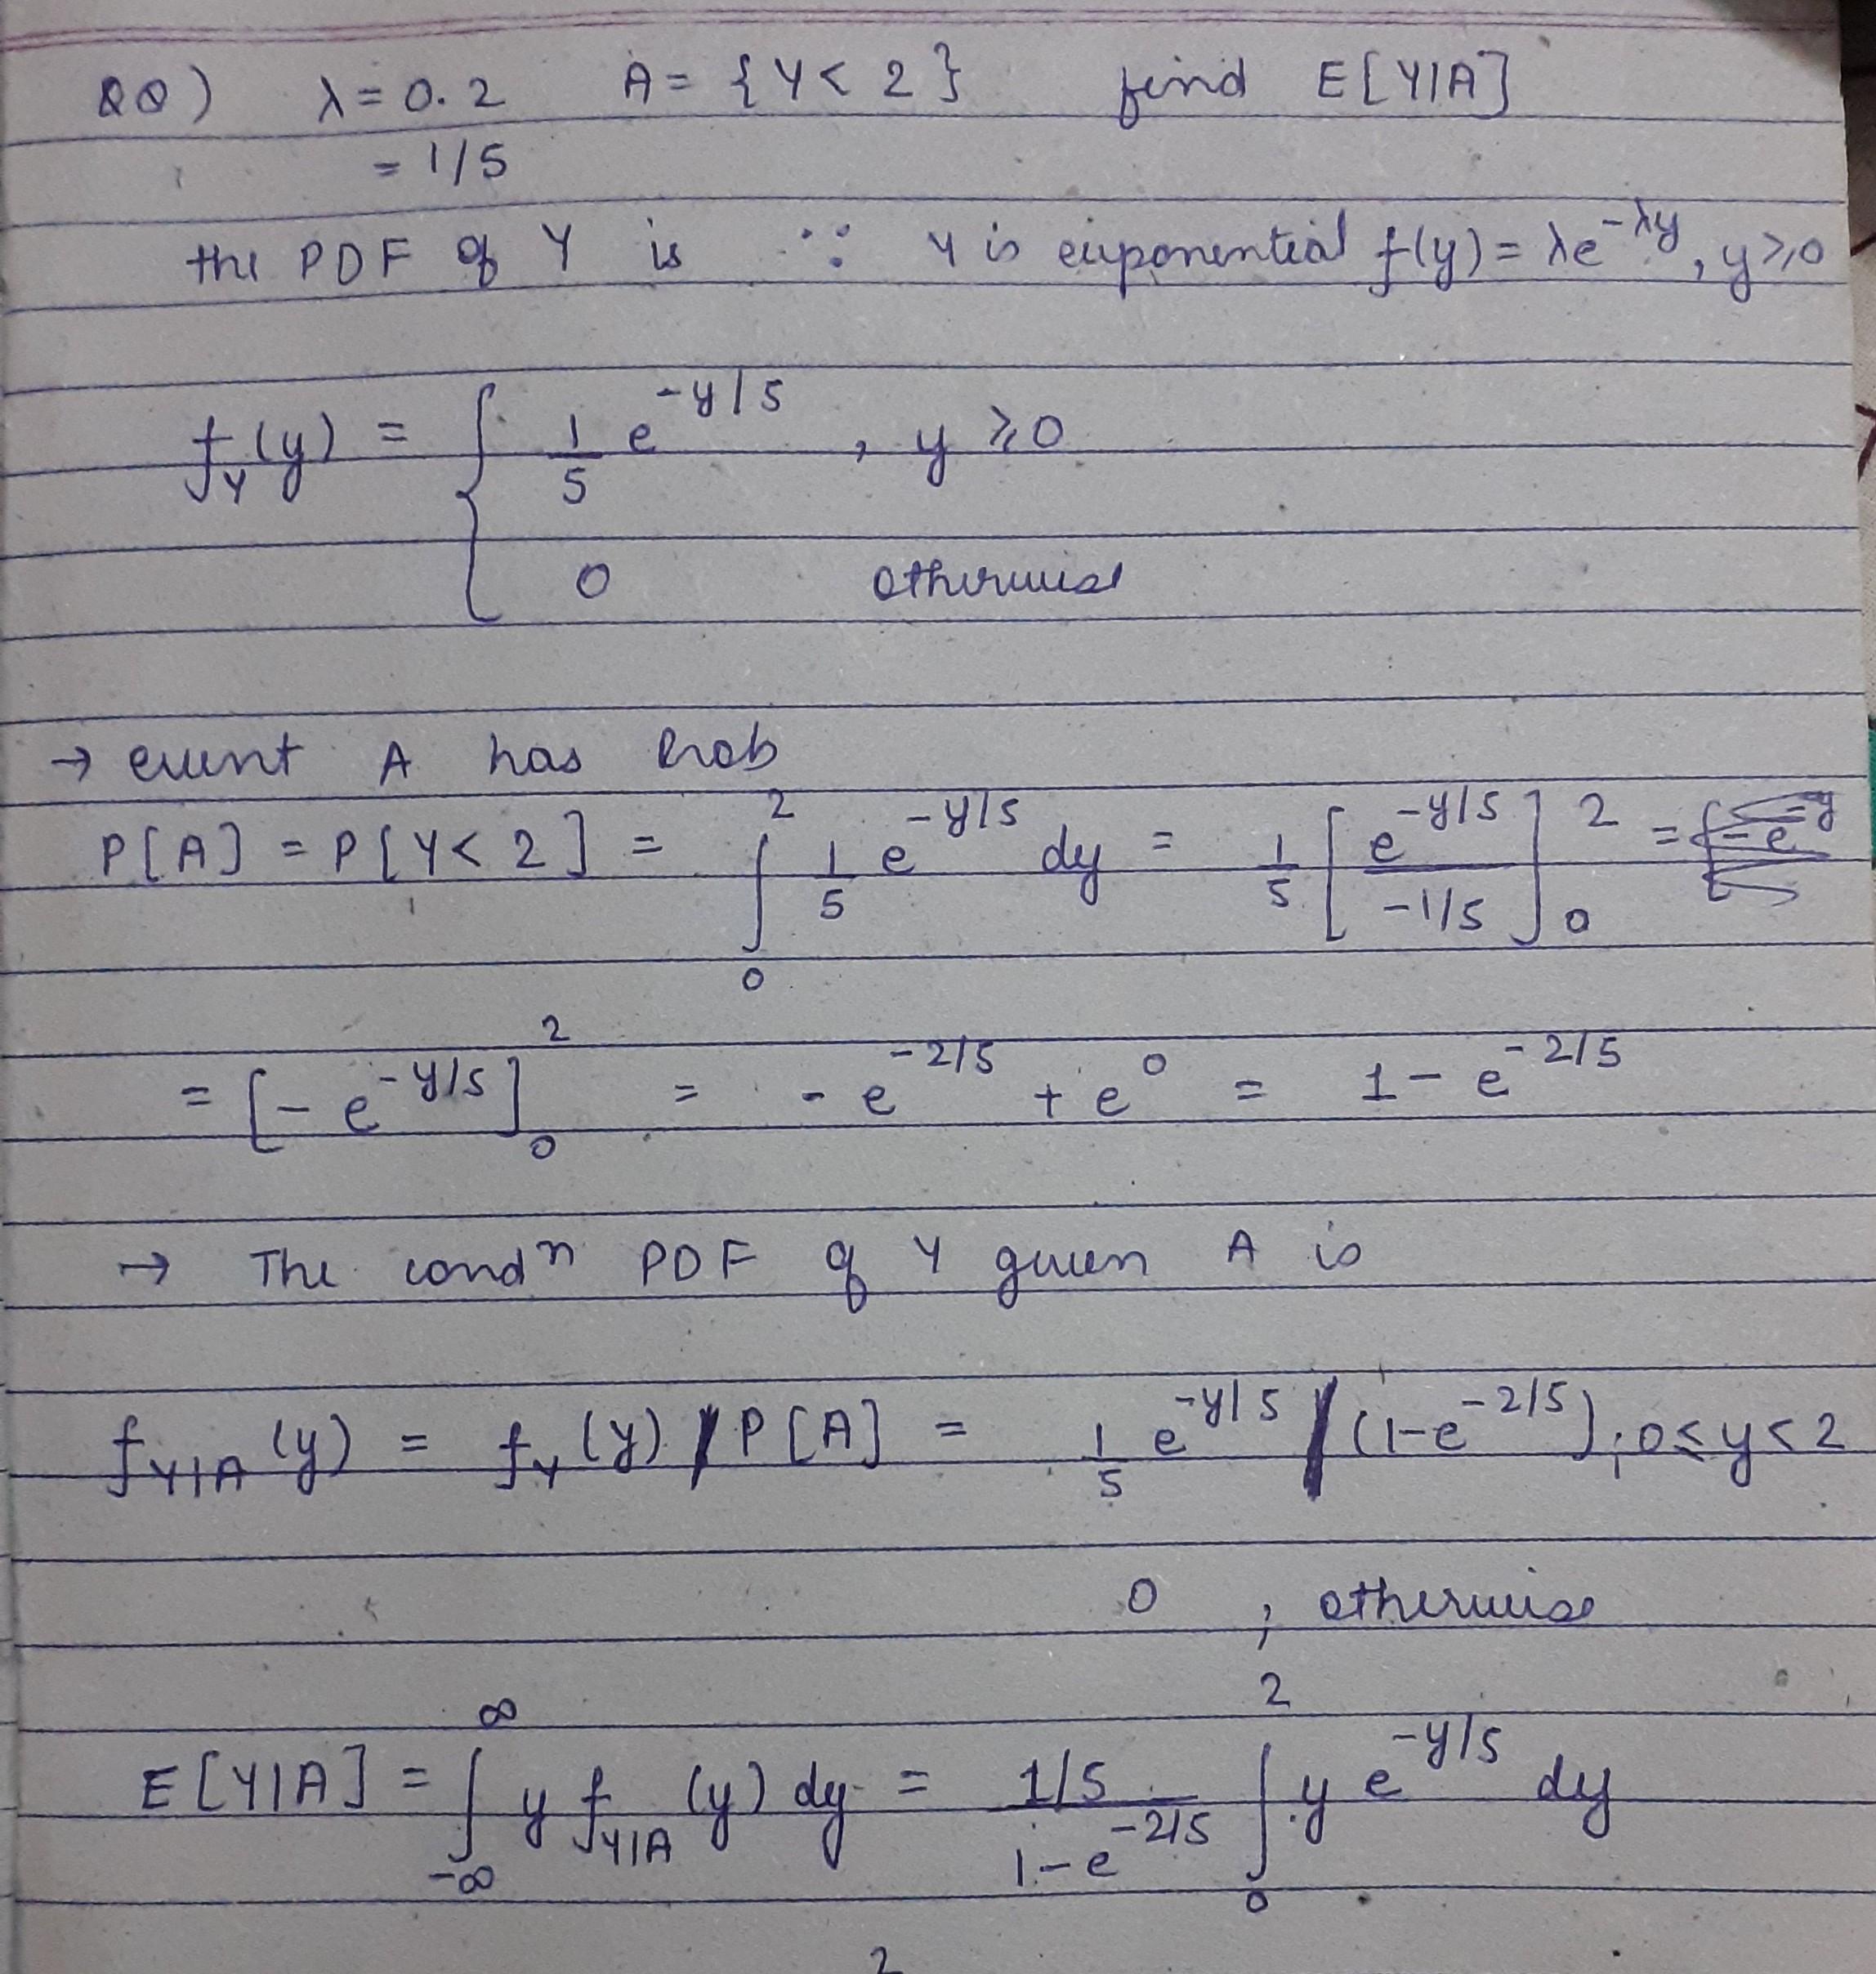 QQ) λ = 0.2 A = {Y < 2} find E[Y|A]
= 1/5
the PDF of Y is ∵ Y is exponential f(y) = λe^{-λy}, y ≥ 0
f_Y(y) = { 1/5 e^{-y/5} , y ≥ 0
0 otherwise
→ event A has Prob
P[A] = P[Y < 2] = ∫_0^2 1/5 e^{-y/5} dy = 1/5 [e^{-y/5} / -1/5]_0^2 =
= [-e^{-y/5}]_0^2 = -e^{-2/5} + e^0 = 1 - e^{-2/5}
→ The condⁿ PDF of Y given A is
f_{Y|A}(y) = f_Y(y) / P[A] = 1/5 e^{-y/5} / (1-e^{-2/5}) ; 0 ≤ y < 2
0 , otherwise
E[Y|A] = ∫_{-∞}^{∞} y f_{Y|A}(y) dy = 1/5 / 1-e^{-2/5} ∫_0^2 y e^{-y/5} dy
2